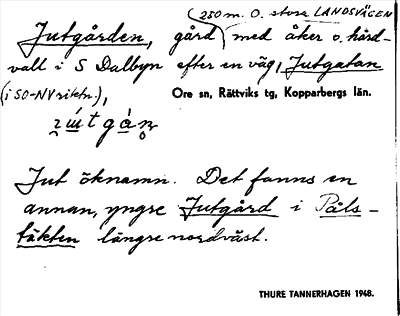 (250 m. O. stora LANDSVÄGEN
Jutgården, gård) med åker o. hård-
vall i S Dalbyn efter en väg, Jutgatan
(i SO-NV riktn.),
Ore sn, Rättviks tg, Kopparbergs län.
Jut öknamn. Det fanns en
annan, yngre Jutgård i Påls-
täkten längre nordväst.
THURE TANNERHAGEN 1948.